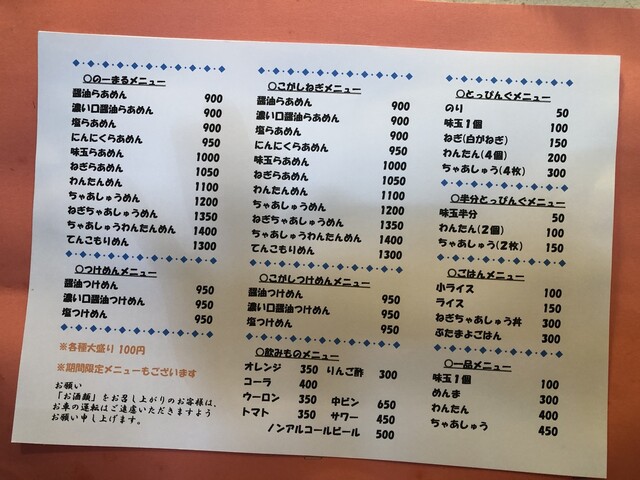 ○のーまるメニュー
醤油らあめん 900
濃い口醤油らあめん 900
塩らあめん 900
にんにくらあめん 950
味玉らあめん 1000
ねぎらあめん 1050
わんたんめん 1100
ちゃあしゅうめん 1200
ねぎちゃあしゅうめん 1350
ちゃあしゅうわんたんめん 1400
てんこもりめん 1300
○つけめんメニュー
醤油つけめん 950
濃い口醤油つけめん 950
塩つけめん 950
※各種大盛り 100円
※期間限定メニューもございます
お願い
「お酒類」をお召し上がりのお客様は、
お車の運転はご遠慮いただきますよう
お願い申し上げます。
○こがしねぎメニュー
醤油らあめん 900
濃い口醤油らあめん 900
塩らあめん 900
にんにくらあめん 950
味玉らあめん 1000
ねぎらあめん 1050
わんたんめん 1100
ちゃあしゅうめん 1200
ねぎちゃあしゅうめん 1350
ちゃあしゅうわんたんめん 1400
てんこもりめん 1300
○こがしつけめんメニュー
醤油つけめん 950
濃い口醤油つけめん 950
塩つけめん 950
○飲みものメニュー
オレンジ 350 りんご酢 300
コーラ 400
ウーロン 350 中ビン 650
トマト 350 サワー 450
ノンアルコールビール 500
○とっぴんぐメニュー
のり 50
味玉1個 100
ねぎ(白がねぎ) 150
わんたん(4個) 200
ちゃあしゅう(4枚) 300
○半分とっぴんぐメニュー
味玉半分 50
わんたん(2個) 100
ちゃあしゅう(2枚) 150
○ごはんメニュー
小ライス 100
ライス 150
ねぎちゃあしゅう丼 300
ぶたまよごはん 300
○一品メニュー
味玉1個 100
めんま 300
わんたん 400
ちゃあしゅう 450